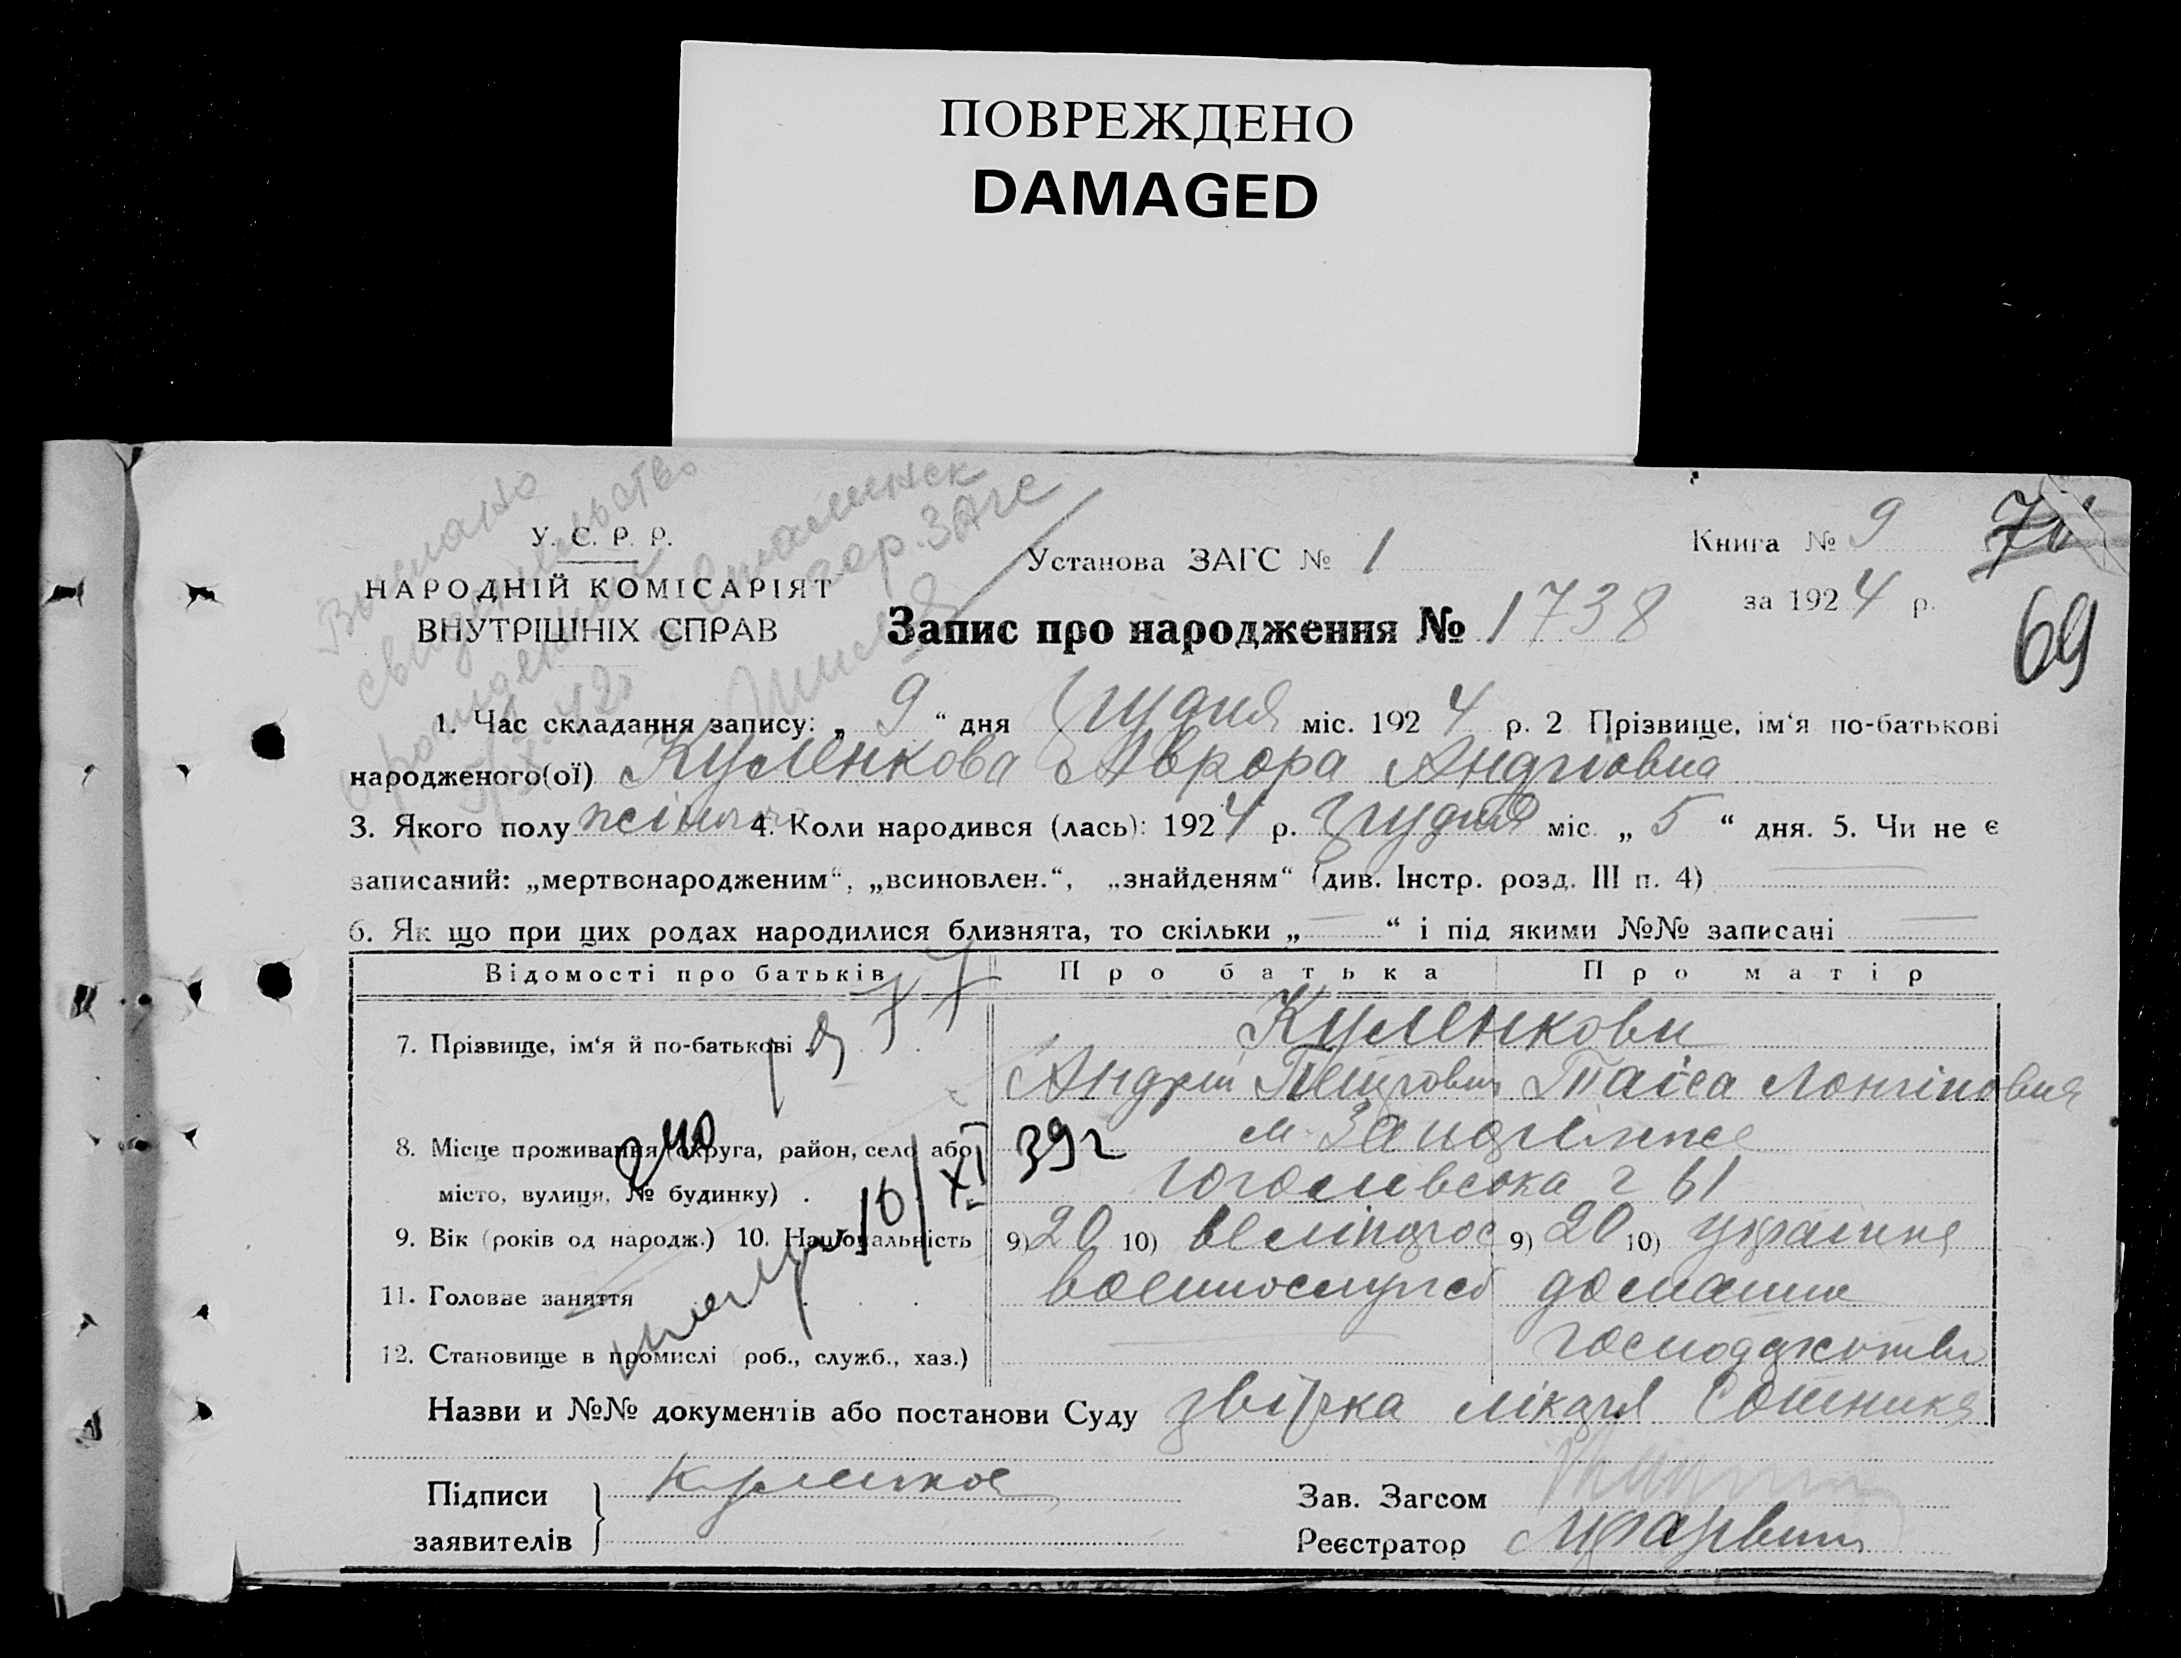 ПОВРЕЖДЕНО
DAMAGED
Выслано
свидетельство
о рождении
5/XI 42г
Сталинск
гор. ЗАГС
У. С. Р. Р.
НАРОДНІЙ КОМІСАРІЯТ
ВНУТРІШНІХ СПРАВ
Установа ЗАГС № 1
Книга № 9
70
за 1924 р.
69
Запис про народження № 1738
1. Час складання запису: „ 9 “ дня Грудня міс. 1924 р. 2 Прізвище, ім‘я по-батькові
народженого(ої) Куленкова Аврора Андріовна
3. Якого полу жіноча 4. Коли народився (лась): 1924 р. Грудня міс. „ 5 “ дня. 5. Чи не є
записаний: „мертвонародженим“, „всиновлен.“, „знайденям“ (див. Інстр. розд. III п. 4)
6. Як що при цих родах народилися близнята, то скільки „ “ і під якими №№ записані
Відомості про батьків Про батька Про матір
7. Прізвище, ім‘я й по-батькові Куленкови
Андрій Петрович Таіса Лонгіновна
8. Місце проживання (округа, район, село або м. Запоріжже
місто, вулиця, № будинку) Гоголівська 2 61
10/XI 39г
9. Вік (років од народж.) 10. Національність 9) 20 10) великорос 9) 20 10) українка
11. Головне заняття военнослужб домашнє
12. Становище в промислі (роб., служб., хаз.) господарство
Назви и №№ документів або постанови Суду звірка лікаря Сотника
Підписи Куленков Зав. Загсом
заявителів Реєстратор